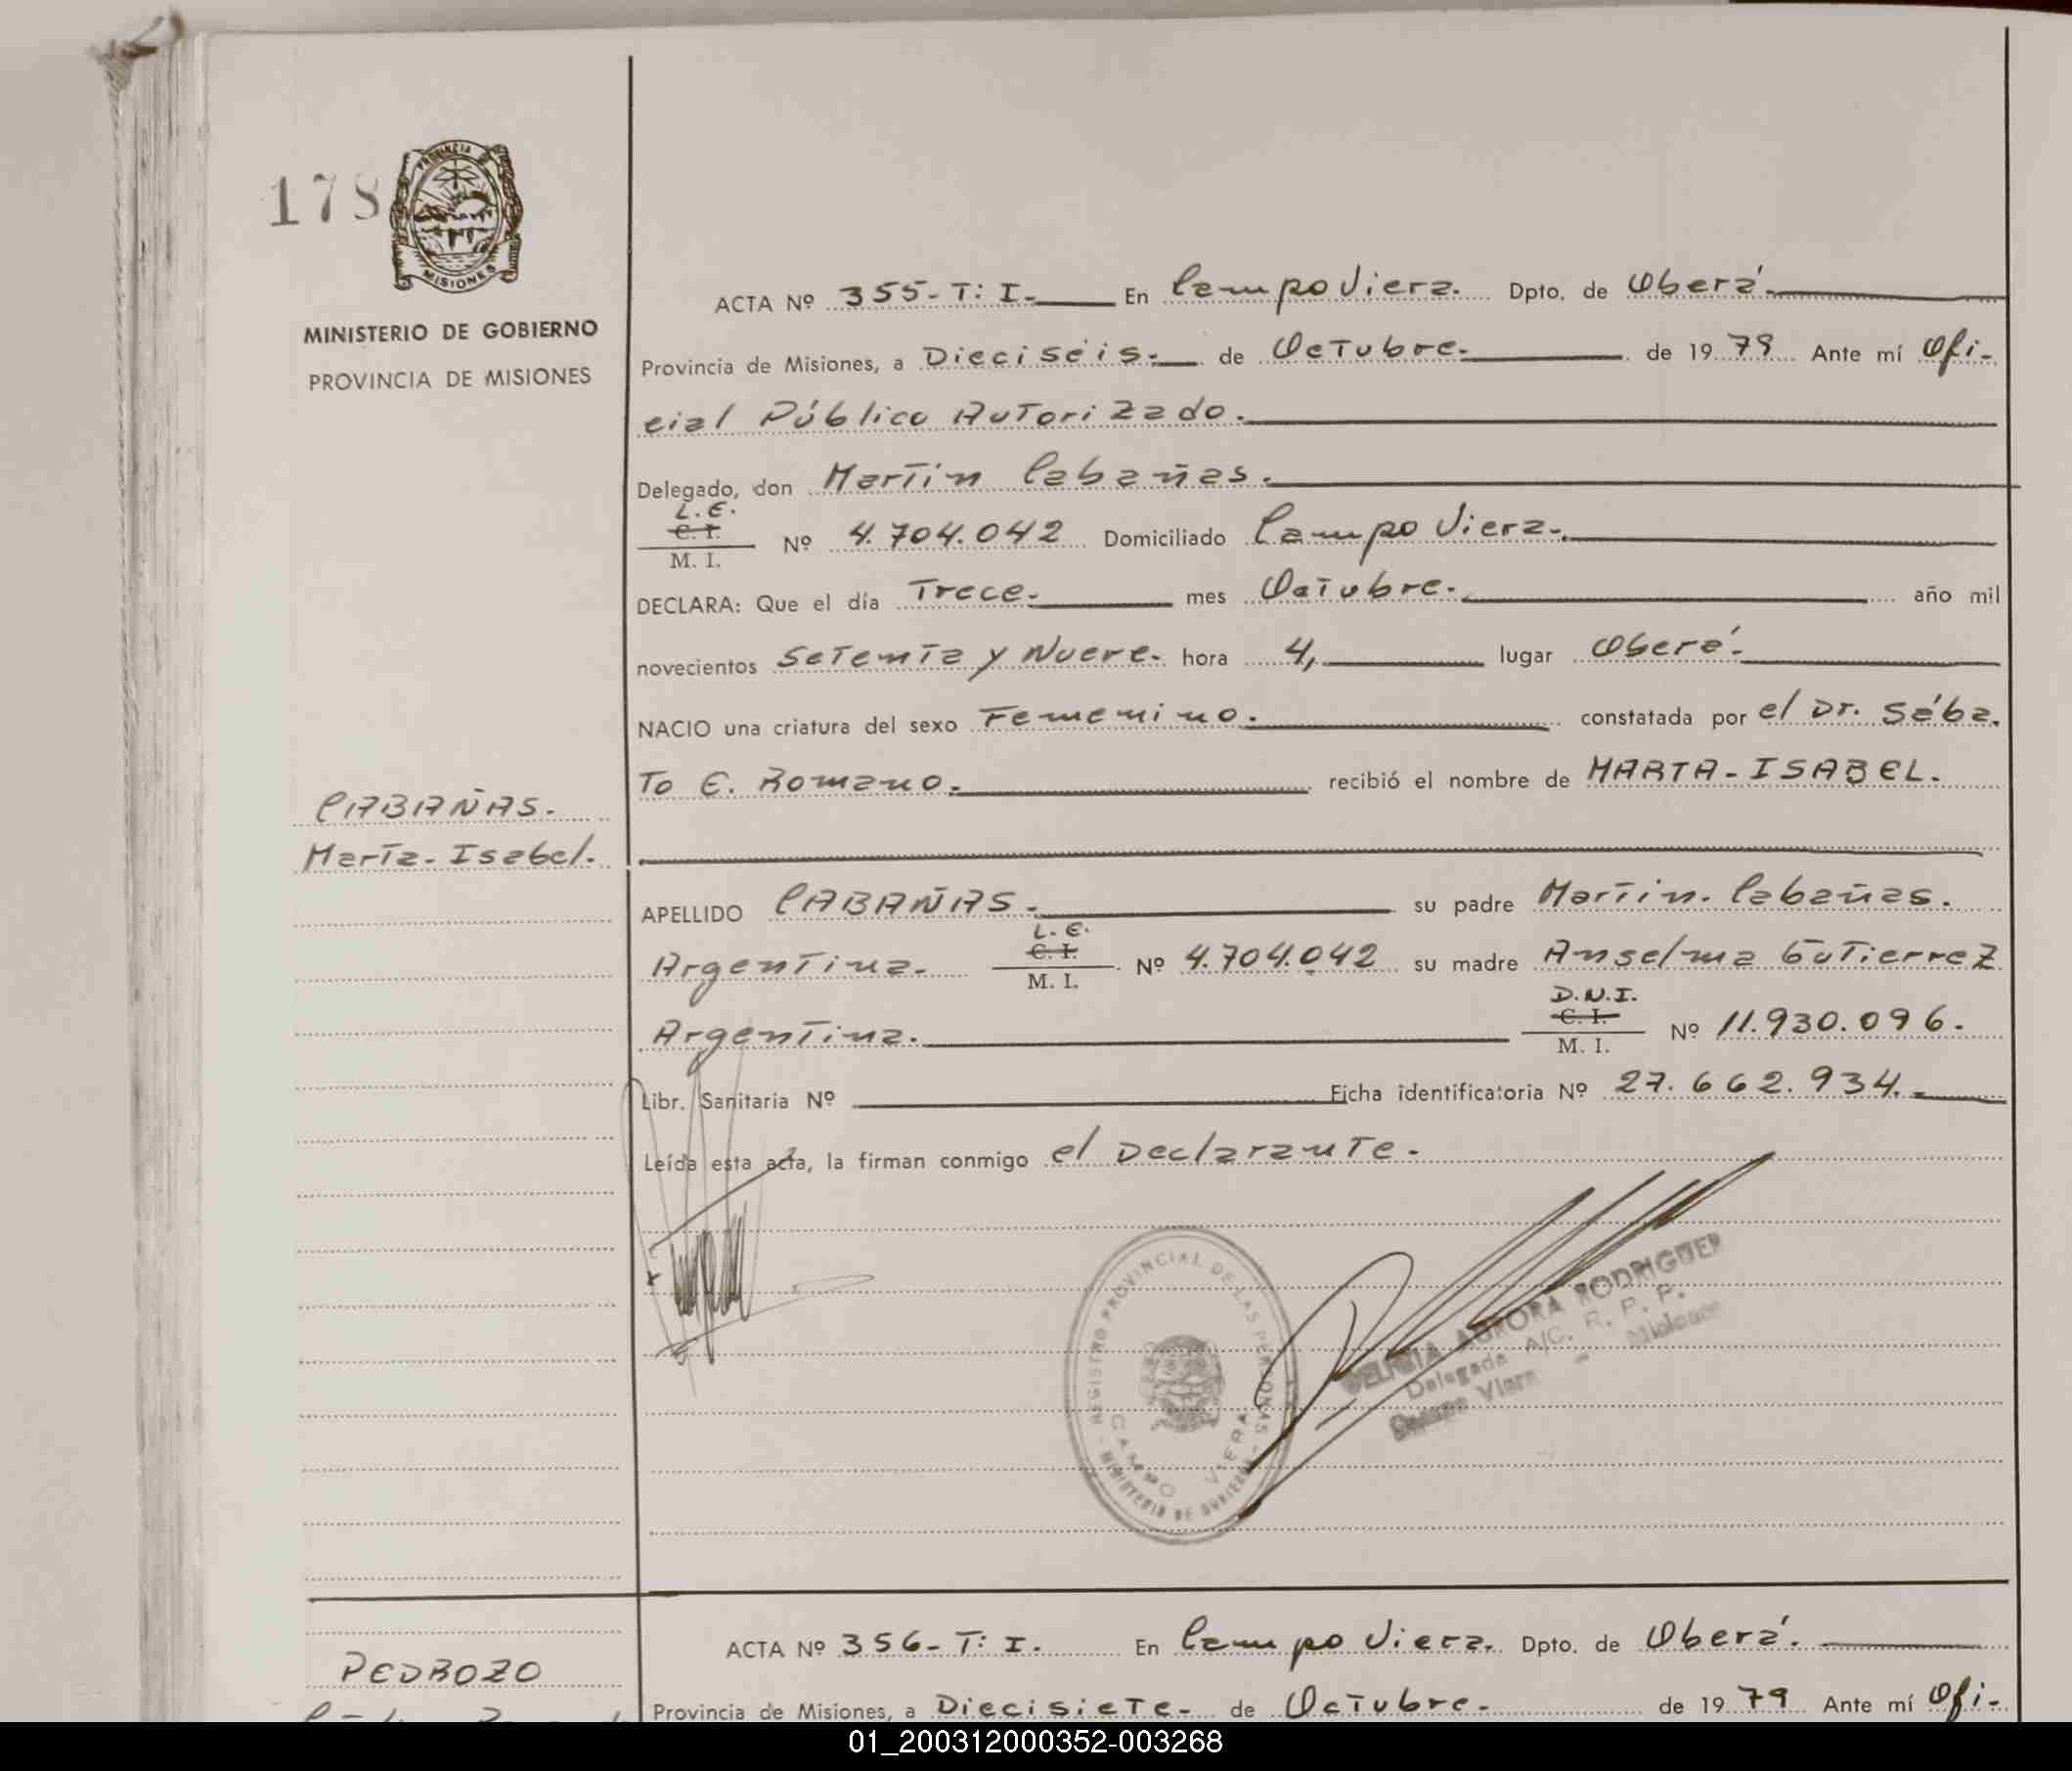 178
PROVINCIA DE
MISIONES
MINISTERIO DE GOBIERNO
PROVINCIA DE MISIONES
ACTA Nº 355-T: I. En Campo Viera. Dpto. de Oberá.
Provincia de Misiones, a Dieciséis. de Octubre. de 1979 Ante mí Ofi-
cial Público Autorizado.
Delegado, don Martín Cabañas.
L.E.
C. I.
M. I. Nº 4.704.042 Domiciliado Campo Viera.
DECLARA: Que el día Trece. mes Octubre. año mil
novecientos Setenta y Nueve. hora 4, lugar Oberá.
NACIO una criatura del sexo Femenino. constatada por el Dr. Sába.
To E. Romano. recibió el nombre de MARTA-ISABEL.
CABAÑAS.
Marta-Isabel.
APELLIDO CABAÑAS. su padre Martín. Cabañas.
Argentina. L.E.
C. I.
M. I. Nº 4.704.042 su madre Anselma GuTierreZ
Argentina. D.N.I.
C. I.
M. I. Nº 11.930.096.
Libr. Sanitaria Nº Ficha identificatoria Nº 27.662.934.
Leída esta acta, la firman conmigo el Declarante.
REGISTRO PROVINCIAL DE LAS PERSONAS
MINISTERIO DE GOBIERNO
CAMPO VIERA
AURORA RODRIGUEZ
Delegada A/C. R. P. P.
Campo Viera - Misiones
ACTA Nº 356-T: I. En Campo Viera. Dpto. de Oberá.
PEDROZO
Provincia de Misiones, a Diecisiete. de Octubre. de 1979 Ante mí Ofi-
01_200312000352-003268